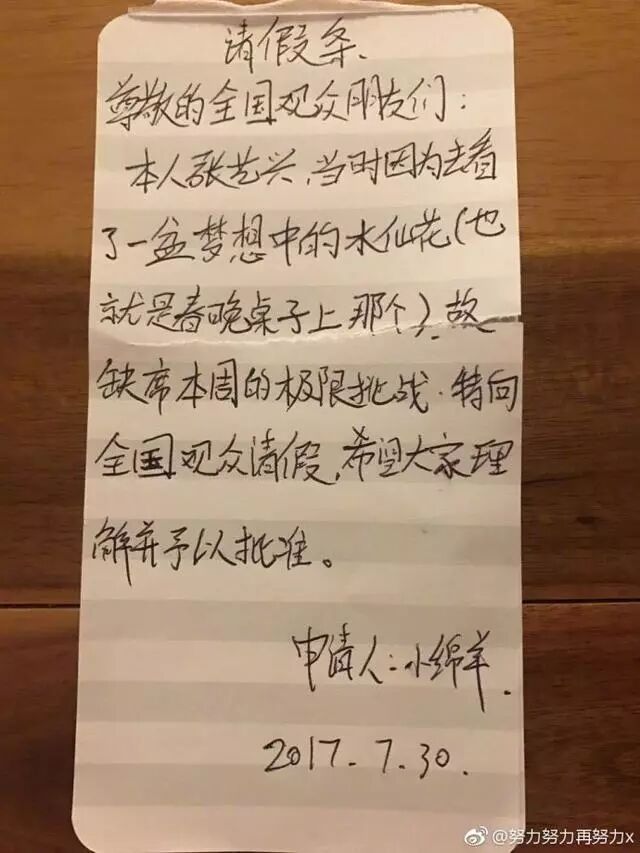 请假条.
尊敬的全国观众朋友们：
本人张艺兴，当时因为去看
了一盆梦想中的水仙花（也
就是春晚桌子上那个）.故
缺席本周的极限挑战.特向
全国观众请假，希望大家理
解并予以批准。
申请人：小绵羊.
2017.7.30.
@努力努力再努力x